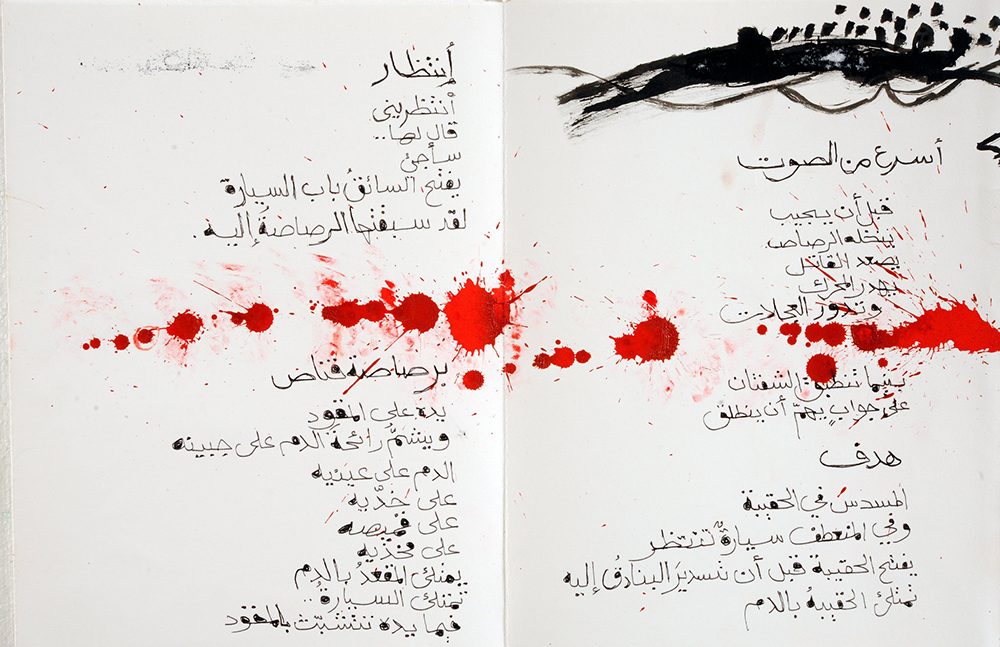 أسرع من الصوت
قبل أن يجيب
ينخله الرصاص
يصعد القاتل
يهدر المحرك
وتدور العجلات
بينما تنطبق الشفتان
على جوابٍ يهمّ أن ينطلق
هدف
المسدسَ في الحقيبة
وفي المنعطف سيارةٌ تنتظر
يفتح الحقيبة قبل أن تستديرَ البنادقُ إليه
تمتلئ الحقيبة بالدم
إنتظار
أنتظريني
قال لها..
سأجئ
يفتح السائقُ باب السيارة
لقد سبقتها الرصاصةُ إليه.
برصاصة قناص
يده على المقود
ويشمُّ رائحة الدم على جبينه
الدم على عينيه
على خدّيه
على قميصه
على فخذيه
يمتلئ المقعدُ بالدم
تمتلئ السيارةُ..
فيما يده تتشبّث بالمقود